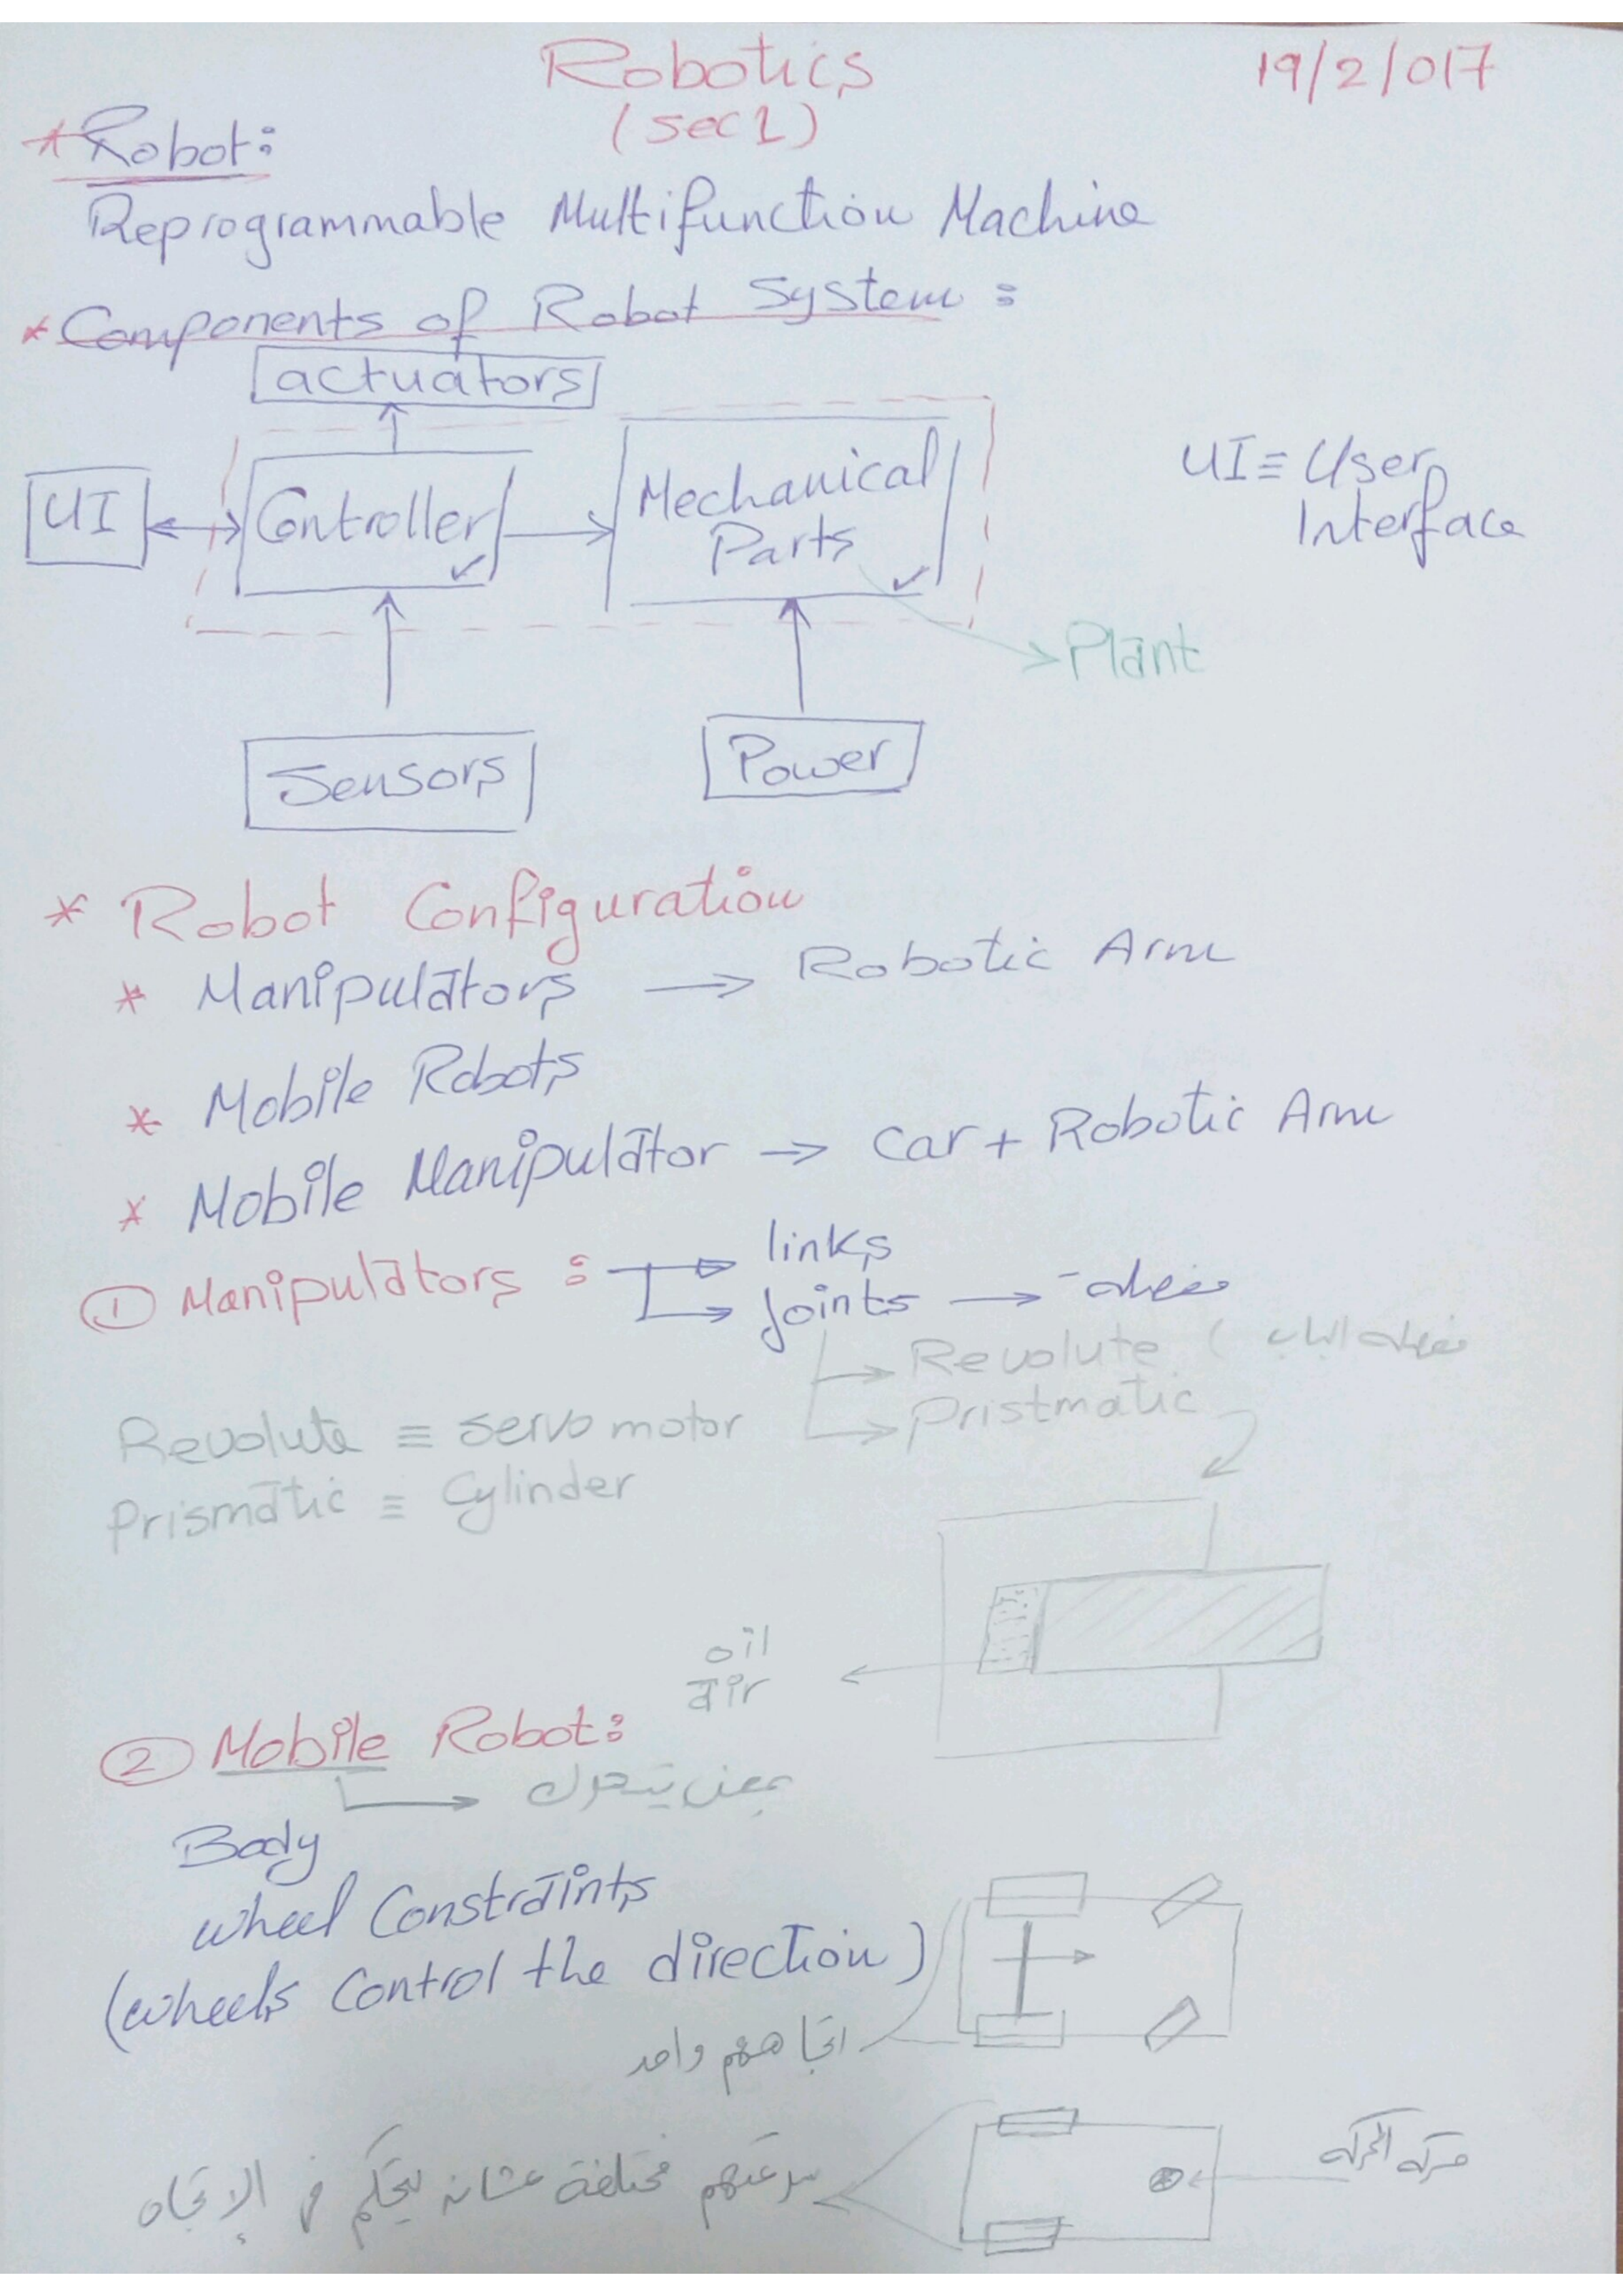 Robotics
19/2/017
(sec 1)
* Robot:
Reprogrammable Multifunction Machine
* Components of Robot System:
actuators
UI
Controller
Mechanical
Parts
UI ≡ User
Interface
Plant
Sensors
Power
* Robot Configuration
* Manipulators → Robotic Arm
* Mobile Robots
* Mobile Manipulator → Car + Robotic Arm
① Manipulators: → links
→ Joints →
→ Revolute (
→ Pristmatic
Revolute ≡ servo motor
Prismatic ≡ Cylinder
oil
air
② Mobile Robot:
بمعنى يتحرك
Body
wheel Constraints
(wheels Control the direction)
اتجاههم واحد
سرعتهم مختلفة عشان يتحكم في الإتجاه